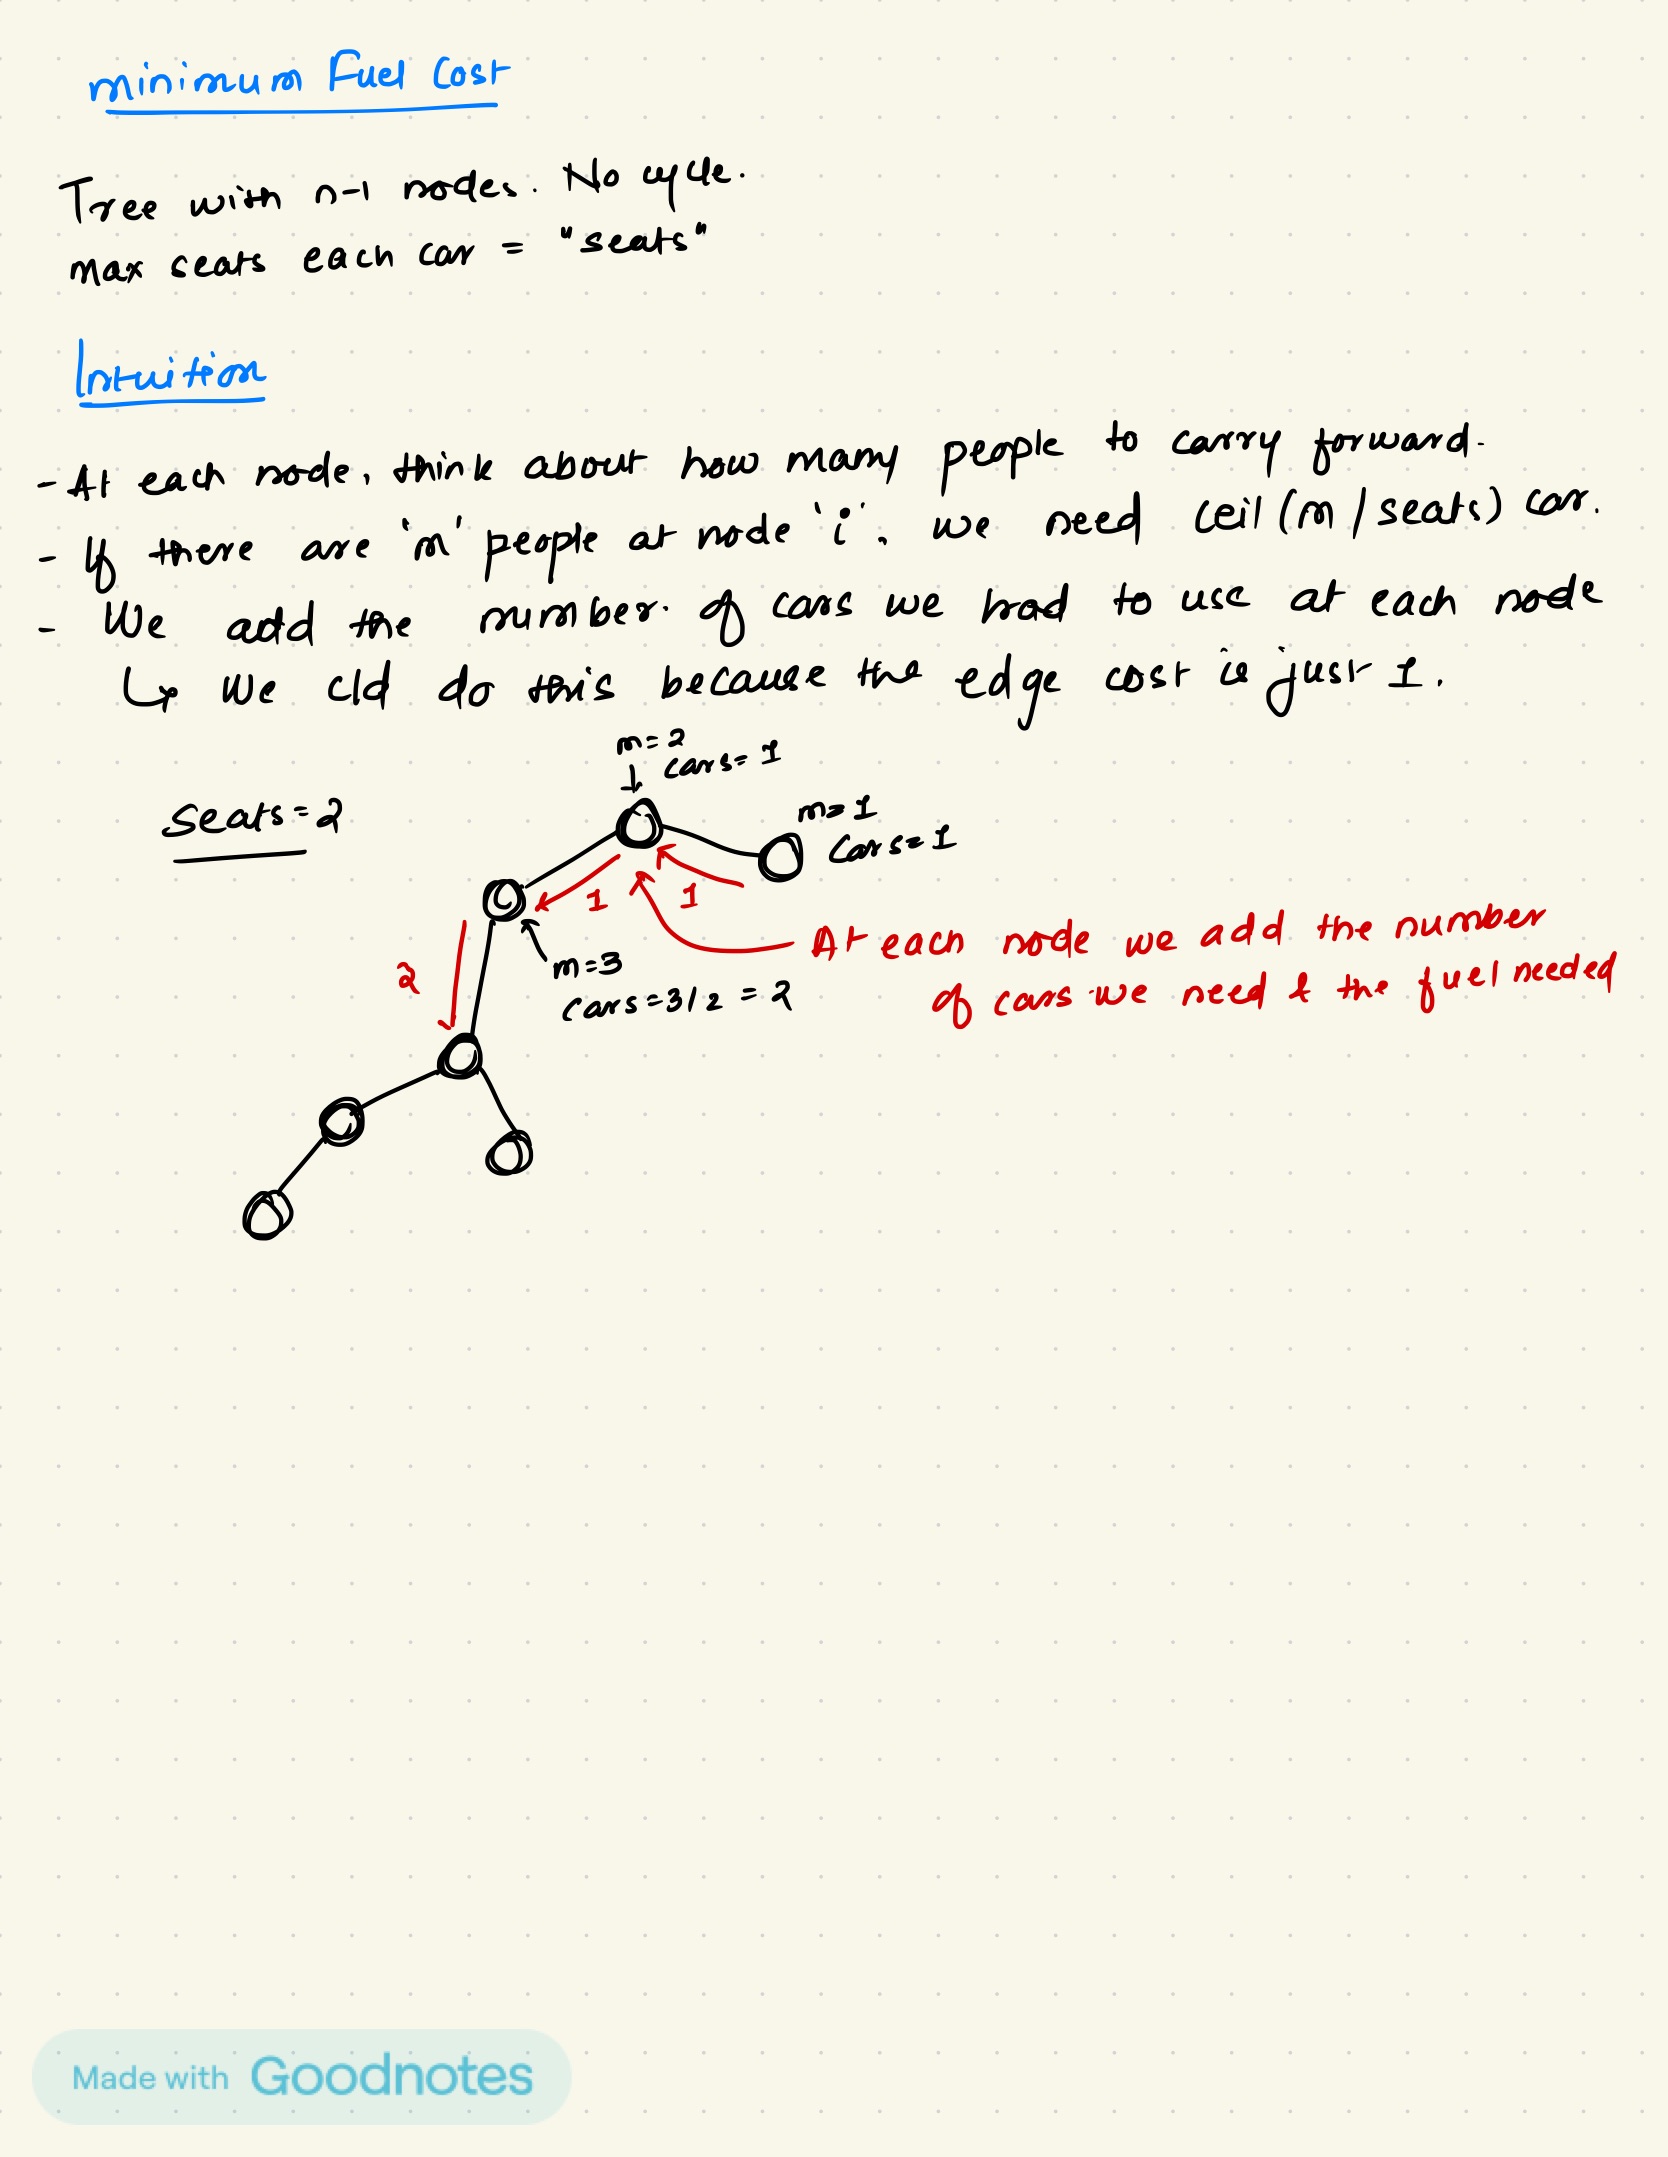 minimum Fuel Cost
Tree with n-1 nodes. No cycle.
max seats each car = "seats"
Intuition
- At each node, think about how many people to carry forward.
- If there are 'm' people at node 'i', we need ceil(m/seats) car.
- We add the number of cars we had to use at each node
↳ We cld do this because the edge cost is just 1.
m=2
cars=1
seats=2
m=1
Cars=1
1
1
2
m=3
cars=3/2 = 2
At each node we add the number
of cars we need & the fuel needed
Made with Goodnotes